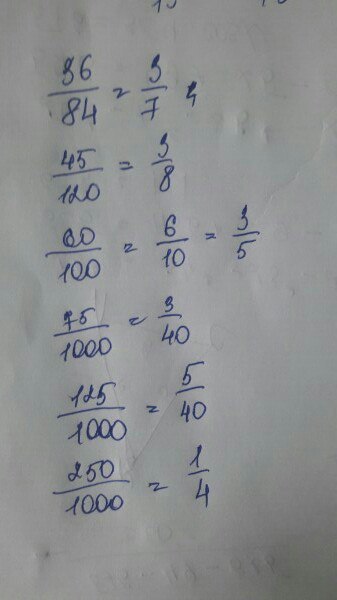 36/84 = 3/7 ;
45/120 = 3/8
60/100 = 6/10 = 3/5
75/1000 = 3/40
125/1000 = 5/40
250/1000 = 1/4